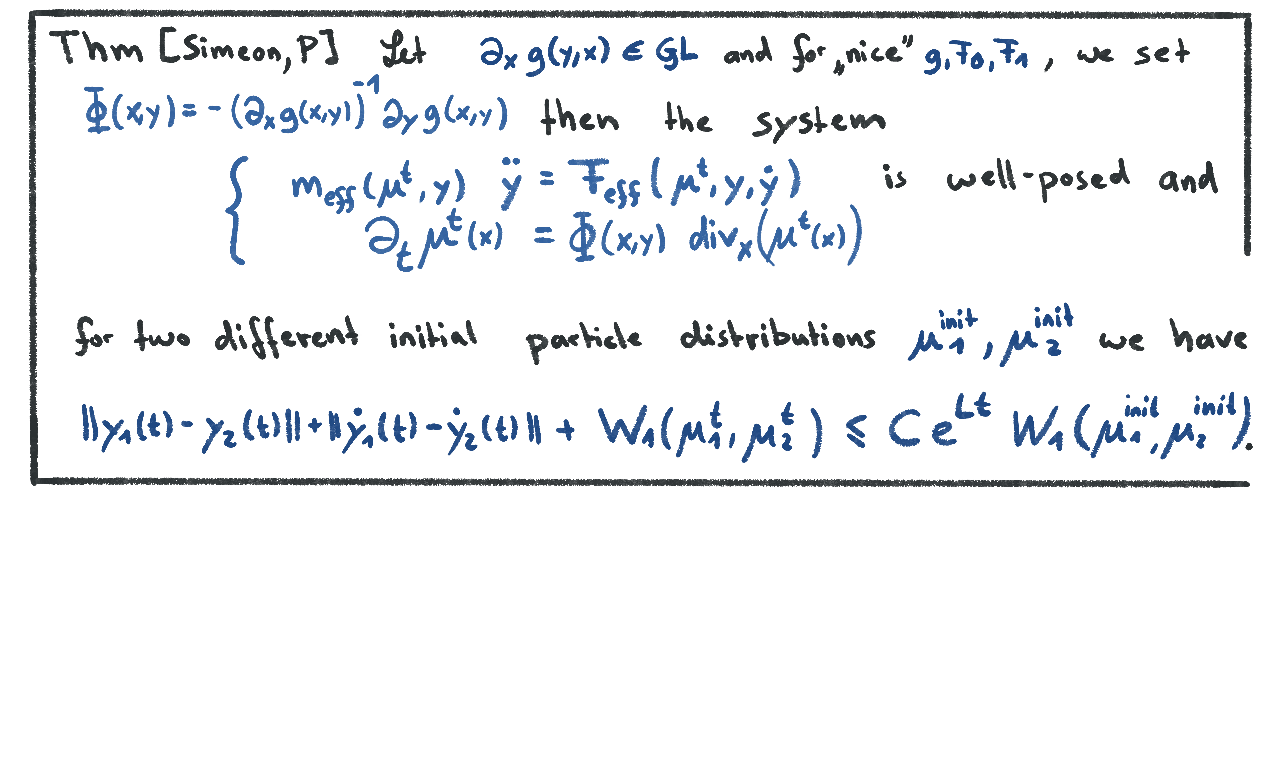 Thm [Simeon, P] Let ∂ₓ g(y,x) ∈ GL and for „nice" g, F₀, F₁, we set
Φ(x,y) = - (∂ₓg(x,y))⁻¹ ∂ᵧ g(x,y) then the system
{ m_eff(μᵗ, y) ÿ = F_eff(μᵗ, y, ẏ) is well-posed and
∂ₜ μᵗ(x) = Φ(x,y) divₓ(μᵗ(x))
for two different initial particle distributions μ₁^init, μ₂^init we have
||y₁(t) - y₂(t)|| + ||ẏ₁(t) - ẏ₂(t)|| + W₁(μ₁ᵗ, μ₂ᵗ) ⩽ C e^{Lt} W₁(μ₁^init, μ₂^init).